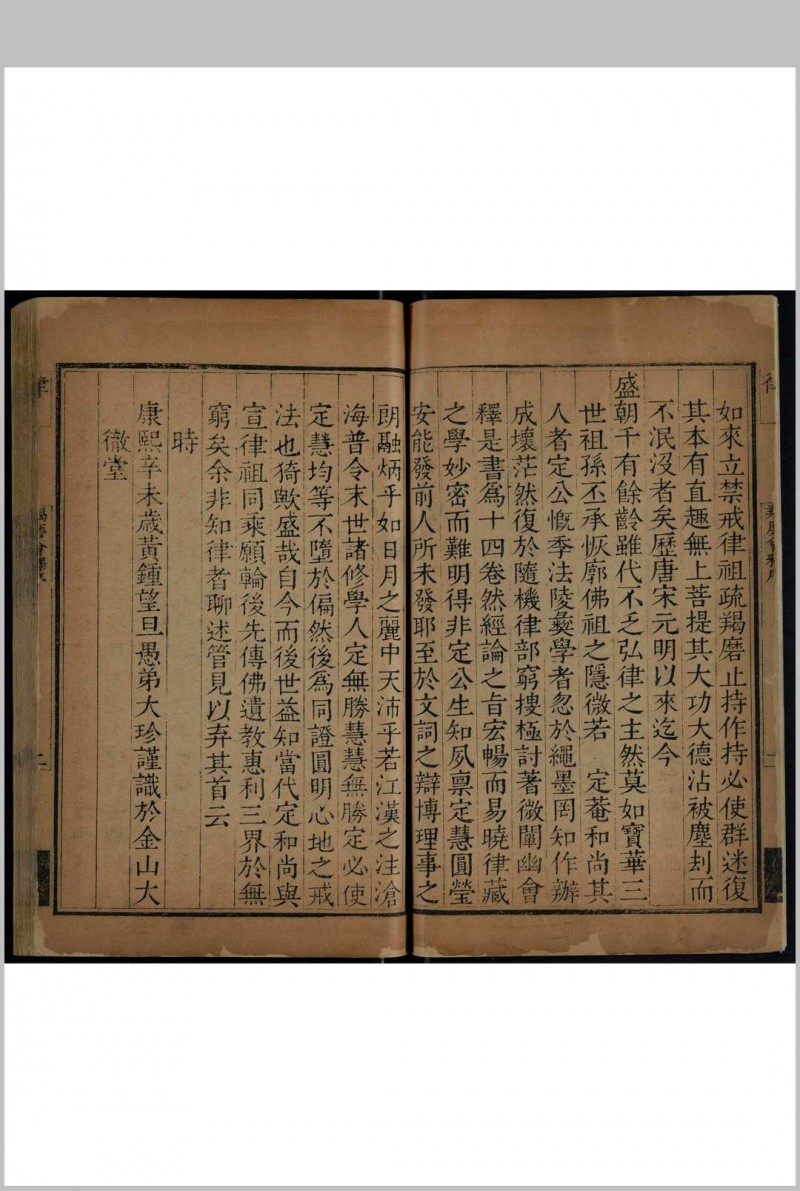 如來立禁戒律祖疏羯磨止持作持必使群迷復
其本有直趣無上菩提其大功大德沾被塵刹而
不泯沒者矣歷唐宋元明以來迄今
盛朝千有餘齡雖代不乏弘律之主然莫如寶華三
世祖孫丕承恢廓佛祖之隱微若　定菴和尚其
人者定公慨季法陵彝學者忽於繩墨罔知作辦
成壞茫然復於隨機律部窮摟極討著微闡幽會
釋是書爲十四卷然經論之旨宏暢而易曉律藏
之學妙密而難明得非定公生知夙禀定慧圓瑩
安能發前人所未發耶至於文詞之辯博理事之
朗融炳乎如日月之麗中天沛乎若江漢之注滄
海普令末世諸修學人定無勝慧慧無勝定必使
定慧均等不墮於偏然後爲同證圓明心地之戒
法也猗歟盛哉自今而後世益知當代定和尚與
宣律祖同乘願輪後先傳佛遺教惠利三界於無
窮矣余非知律者聊述管見以弃其首云
時
康熙辛未歲黃鍾望旦愚弟大珍謹識於金山大
徹堂
律
二